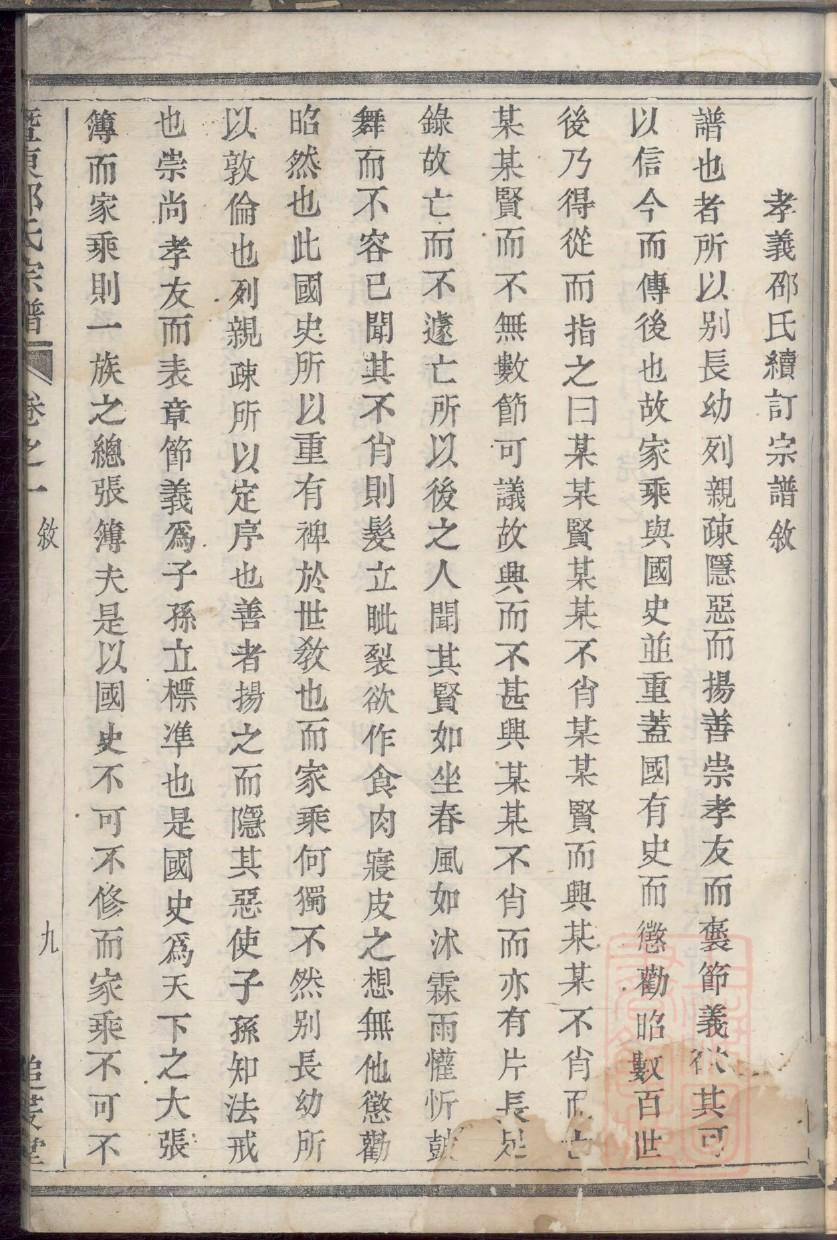 孝義邵氏續訂宗譜敘
譜也者所以別長幼列親疎隱惡而揚善崇孝友而褒節義欲其可
以信今而傳後也故家乘與國史並重蓋國有史而懲勸昭數百世
後乃得從而指之曰某某賢某某不肖某某賢而興某某不肖而亡
某某賢而不無數節可議故興而不甚興某某不肖而亦有片長足
錄故亡而不遽亡所以後之人聞其賢如坐春風如沐霖雨懽忻鼓
舞而不容已聞其不肖則髮立眦裂欲作食肉寢皮之想無他懲勸
昭然也此國史所以重有裨於世教也而家乘何獨不然別長幼所
以敦倫也列親疎所以定序也善者揚之而隱其惡使子孫知法戒
也崇尚孝友而表章節義爲子孫立標準也是國史爲天下之大張
簿而家乘則一族之總張簿夫是以國史不可不修而家乘不可不
暨東邵氏宗譜 卷之一 敘 九 追慕堂